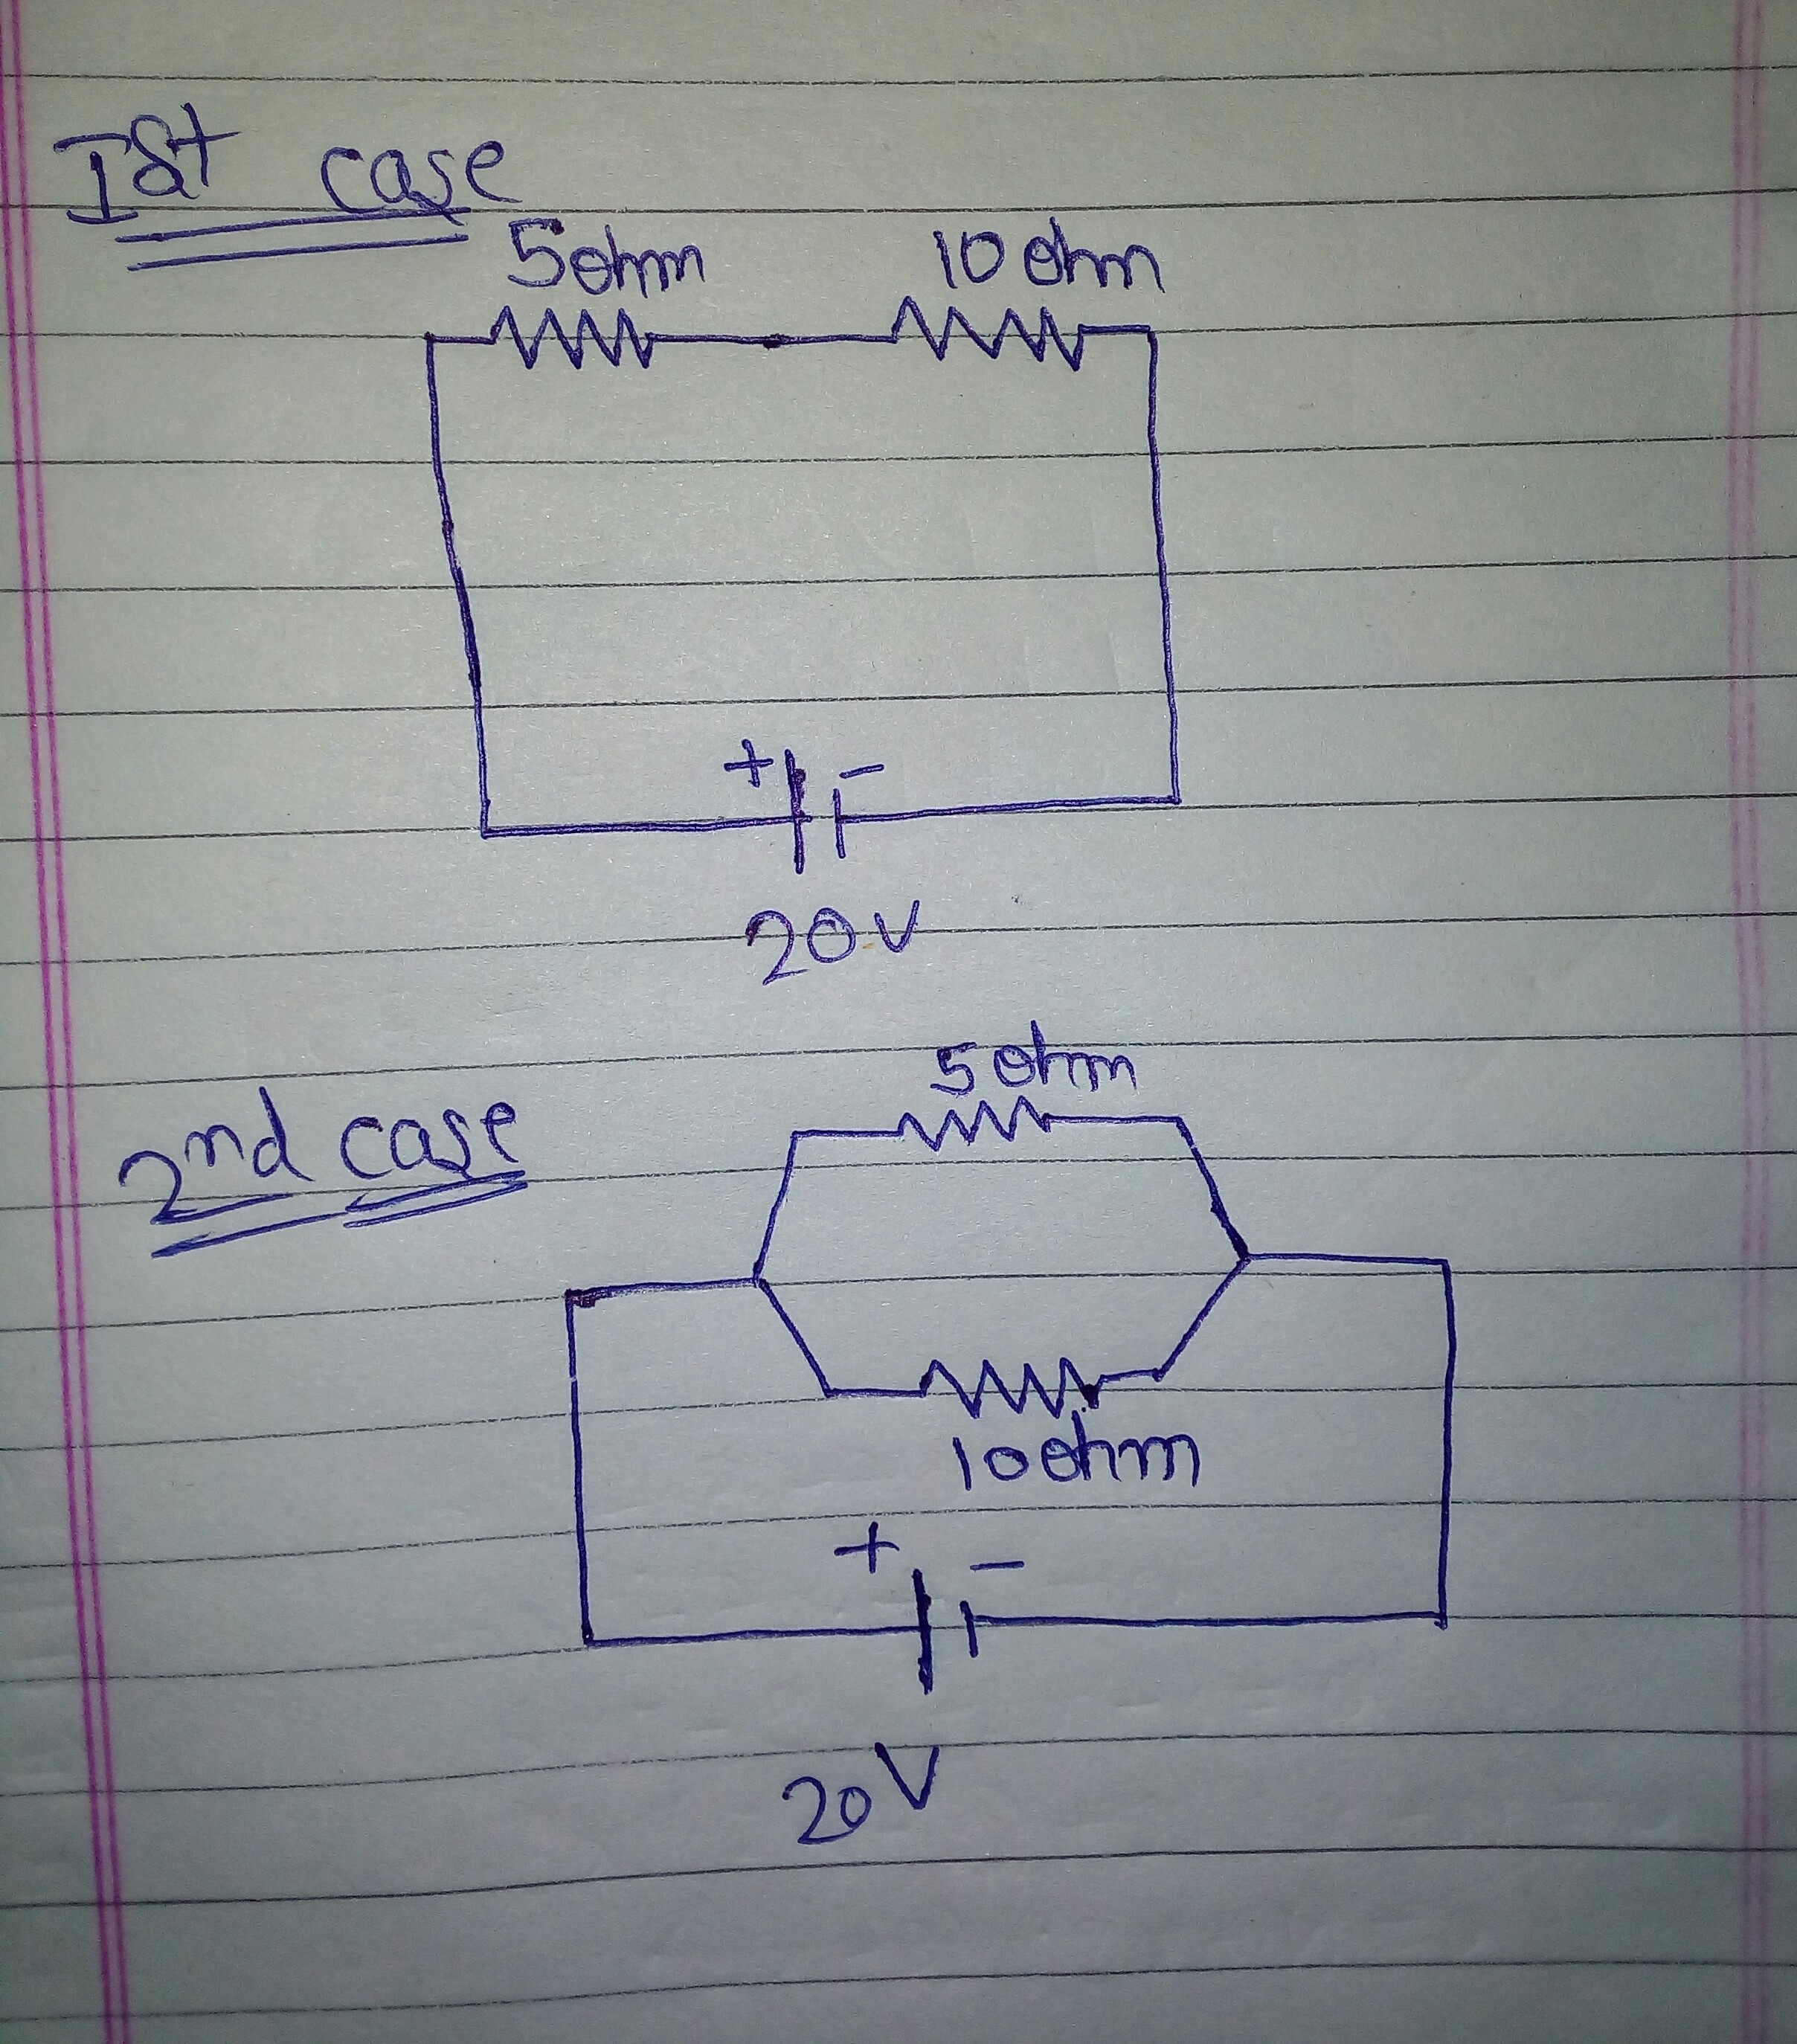 Ist case
5ohm 10 ohm
+ -
20V
5 ohm
2nd case
10ohm
+ -
20V